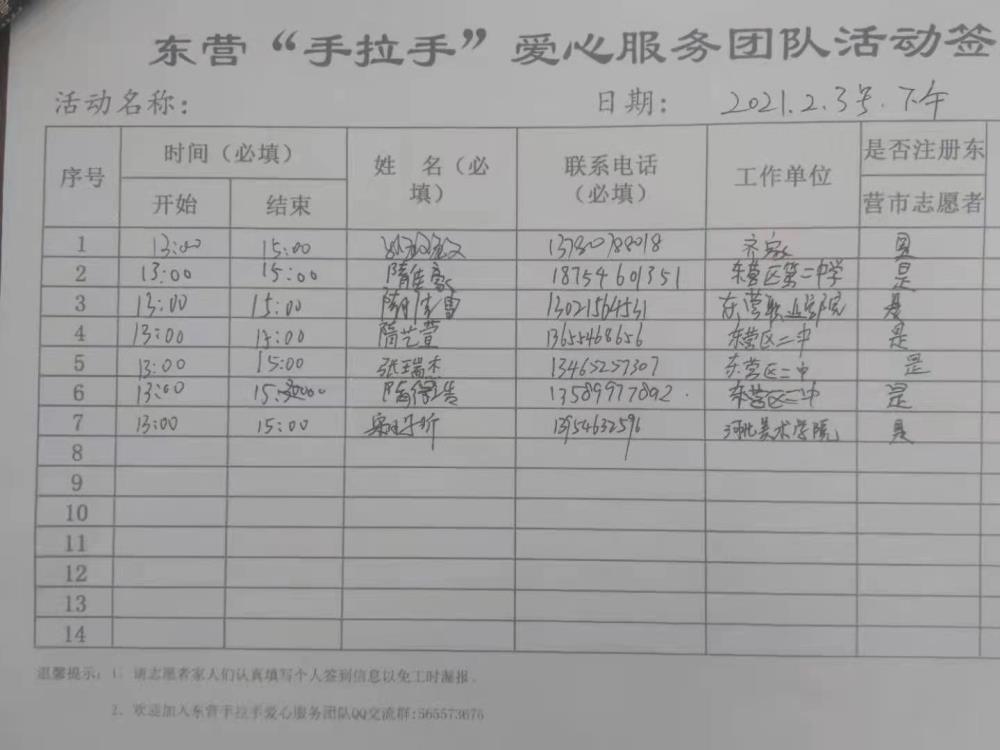 东营“手拉手”爱心服务团队活动签
活动名称： 日期： 2021.2.3号.下午
序号 时间（必填） 姓 名（必填） 联系电话（必填） 工作单位 是否注册东营市志愿者
开始 结束
1 13:00 15:00 13780788018 齐家 是
2 13:00 15:00 隋佳豪 18754601351 东营区第二中学 是
3 13:00 15:00 13021564531 东营职业学院 是
4 13:00 17:00 隋艺萱 13655468656 东营区二中 是
5 13:00 15:00 张瑞杰 13465257307 东营区二中 是
6 13:00 15:00 13589977802. 东营区二中 是
7 13:00 15:00 13954632596 河北美术学院 是
8
9
10
11
12
13
14
温馨提示：1. 请志愿者家人们认真填写个人签到信息以免工时漏报.
2. 欢迎加入东营手拉手爱心服务团队QQ交流群:565573676